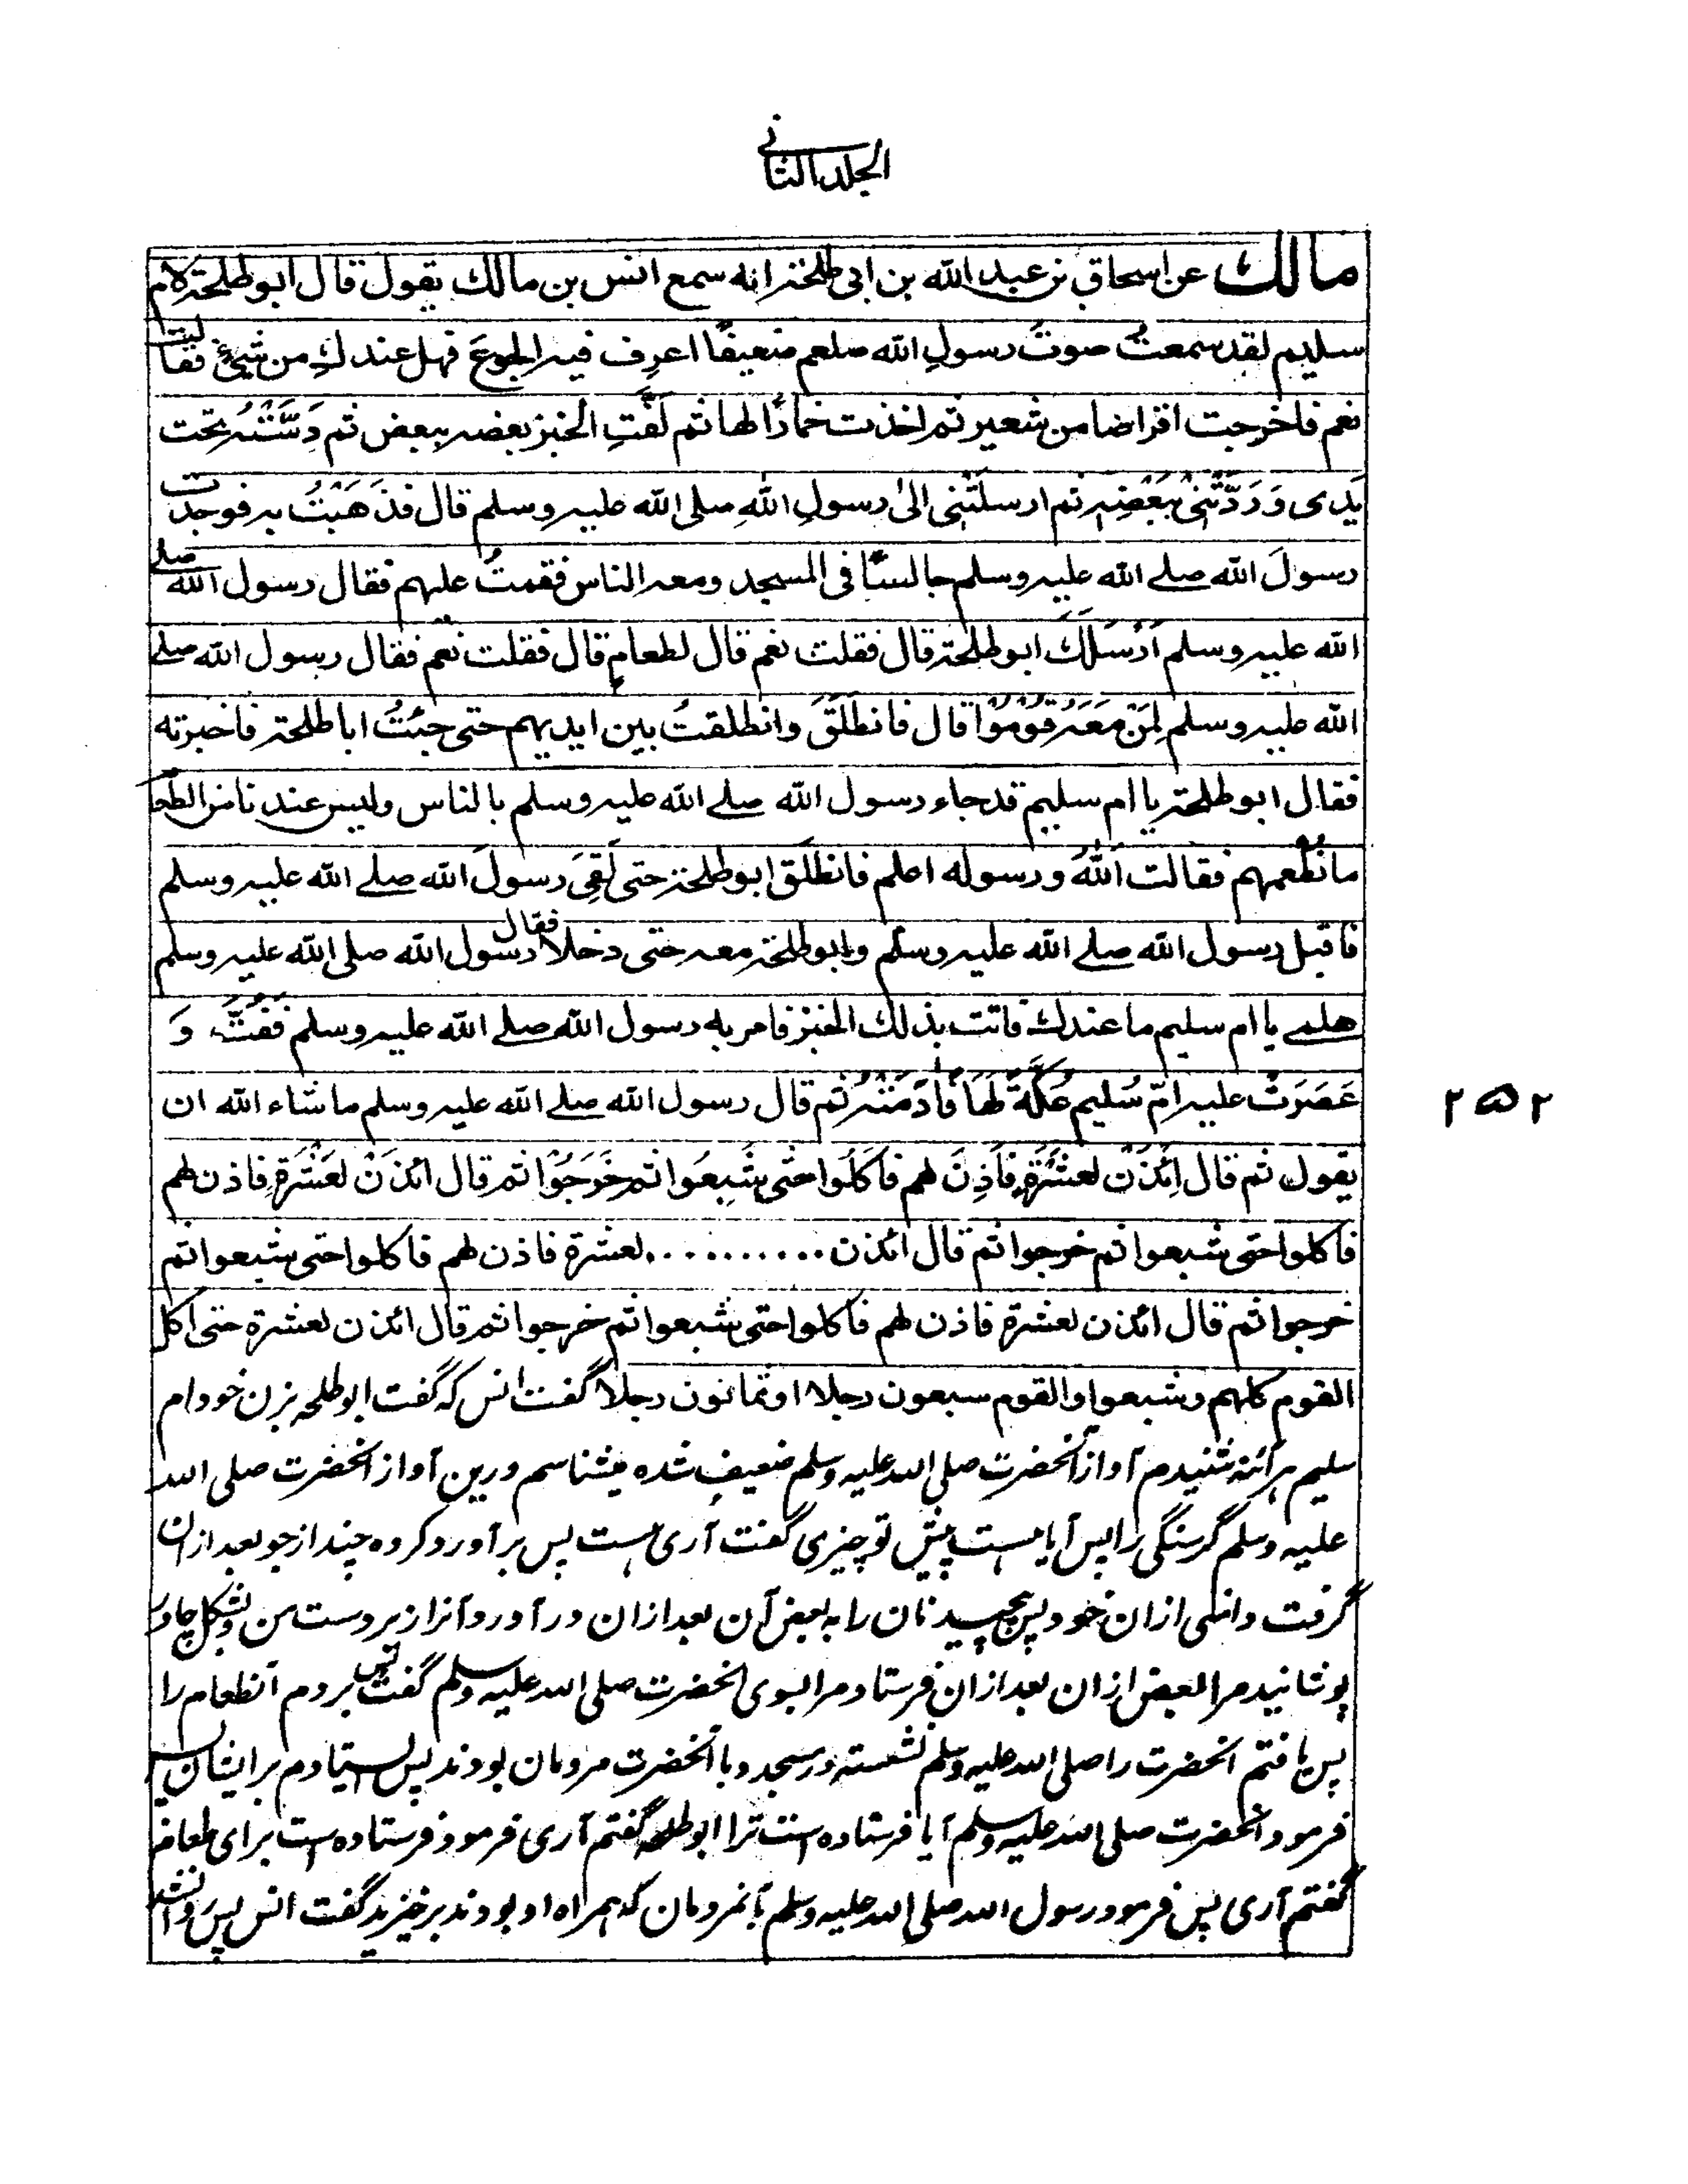 الجلد الثاني
مالك عن اسحاق بن عبد الله بن ابى طلحة انه سمع انس بن مالك يقول قال ابو طلحة لام
سليم لقد سمعتُ صوتَ رسولِ الله صلعم ضعيفًا اعرِف فيه الجوعَ فهل عندكِ من شيئٍ فقالت
نعم فاخرجت اقراضا من شعير ثم اخذت خمارًا لها ثم لَفَّتِ الخبز بعضه ببعض ثم دَسَّتْهُ تحت
يَدى وَرَدَّتْنِىْ بِبَعْضِهٖ ثم ارسلَتْنى الىٰ رسولِ اللهِ صلى الله عليه وسلم قال فذَهَبْتُ به فوجدت
رسولَ الله صلے الله عليه وسلم جالسًا فى المسجد ومعه الناس فقمتُ عليهم فقال رسول الله صلے
الله عليه وسلم اَرْسَلَكَ ابو طلحة قال فقلت نعم قال لطعامٍ قال فقلت نعم فقال رسول الله صلے
الله عليه وسلم لِمَنْ مَعَهٗ قُوْمُوْا قال فانطلَقَ وانطلقتُ بين ايديهم حتى جئتُ ابا طلحة فاخبرته
فقال ابو طلحة يا ام سليم قد جاء رسول الله صلے الله عليه وسلم بالناس وليس عندنا من الطعا
ما نُطعمهم فقالت اللهُ ورسوله اعلم فانطلَق ابو طلحة حتى لَقِىَ رسولَ الله صلے الله عليه وسلم
فاقبل رسول الله صلے الله عليه وسلم وابو طلحة معه حتى دخلا فقال رسول الله صلى الله عليه وسلم
هلمے يا ام سليم ما عندك فاتت بذلك الخبز فامر به رسول الله صلے الله عليه وسلم فَفُتَّ وَ
عَصَرَتْ عليه امّ سُليم عُكَّةً لَهَا فأدَمَتْهُ ثم قال رسول الله صلے الله عليه وسلم ما شاء الله ان
يقول ثم قال اِئذَنْ لعشَرَةٍ فَاَذِنَ لهم فاكَلُوا حتى شَبِعُوا ثم خَرَجَوْا ثم قال ائذَنْ لعَشْرَةٍ فاذن لهم
فاكلوا حتى شبعوا ثم خرجوا ثم قال ائذن .......... لعشرة فاذن لهم فاكلوا حتى شبعوا ثم
خرجوا ثم قال ائذن لعشرة فاذن لهم فاكلوا حتى شبعوا ثم خرجوا ثم قال ائذن لعشرة حتى اكل
القوم كلهم وشبعوا والقوم سبعون رجلا او ثمانون رجلا گفت انس که گفت ابو طلحه بزن خود ام
سلیم هر آئنه شنیدم آواز آنحضرت صلی الله علیه وسلم ضعیف شده میشناسم درین آواز آنحضرت صلی الله
علیه وسلم گرسنگی را پس آیا هست پیش تو چیزی گفت آری هست پس بر آورد گرده چند از جو بعد ازان
گرفت دامنی ازان خود پس پیچید نان را به بعض آن بعد ازان در آورد آنرا زیر دست من و بشکل چادر
پوشانید مرا بعض ازان بعد ازان فرستاد مرا بسوی آنحضرت صلی الله علیه وسلم گفت پس بردم آنطعام را
پس یافتم آنحضرت را صلی الله علیه وسلم نشسته در مسجد و با آنحضرت مردمان بودند پس استادم بر ایشان پس
فرمود آنحضرت صلی الله علیه وسلم آیا فرستاده است ترا ابو طلحه گفتم آری فرمود فرستاده ست برای طعام
گفتم آری پس فرمود رسول الله صلی الله علیه وسلم بآنمردمان که همراه او بودند برخیزید گفت انس پس روانشد
۲۵۲